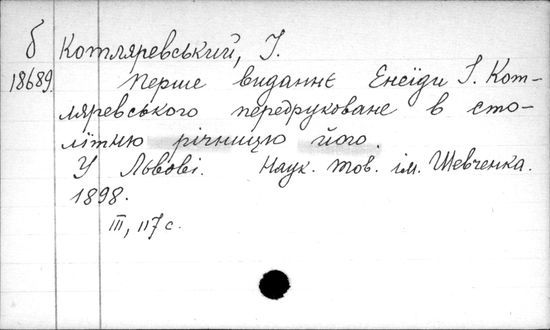 б Котляревський, І.
18689 Перше виданнє Енеїди І. Кот-
ляревського передруковане в сто-
лїтню річницю його.
У Львові. Наук. тов. ім. Шевченка.
1898.
III, 117 с.